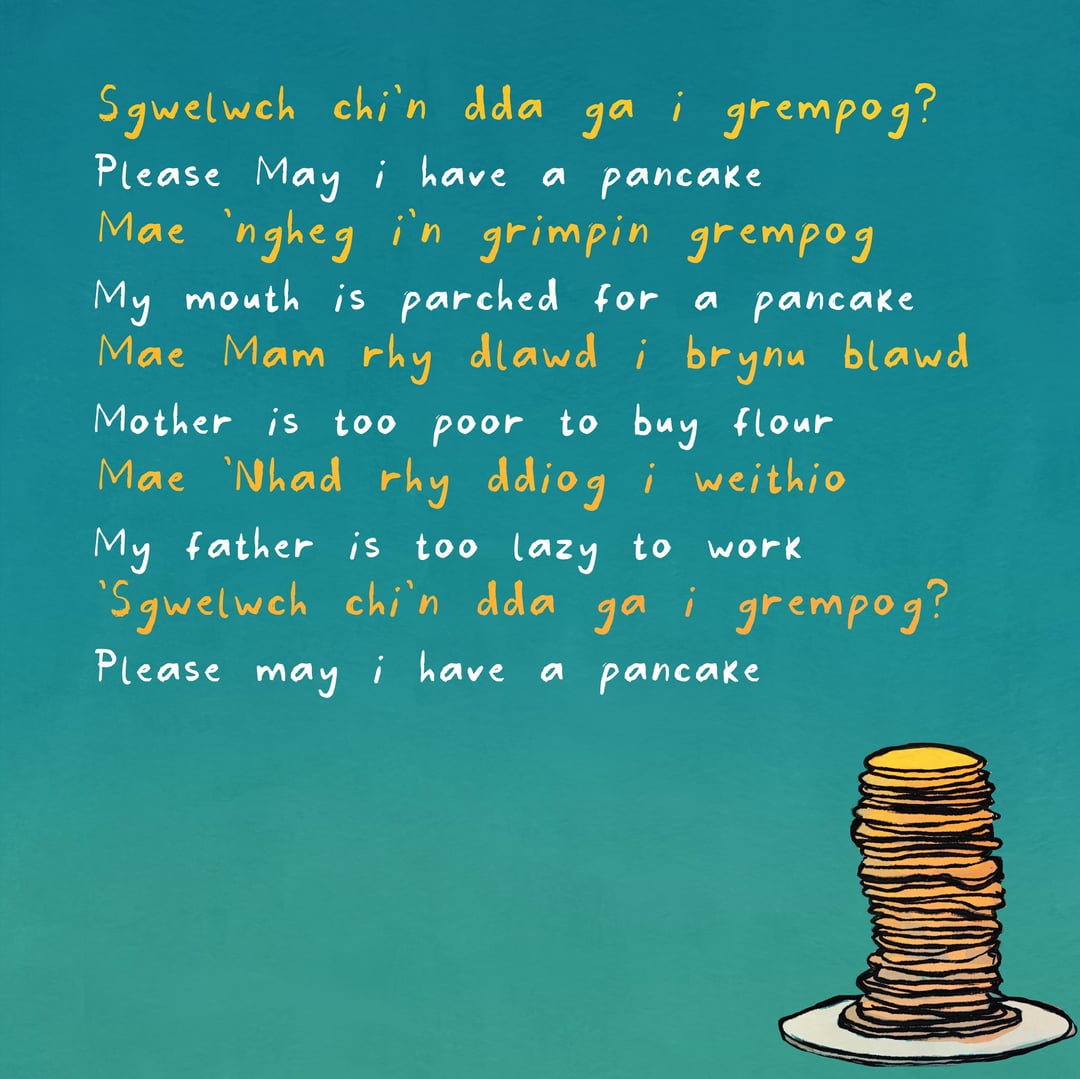 Sgwelwch chi'n dda ga i grempog?
Please May i have a pancake
Mae 'ngheg i'n grimpin grempog
My mouth is parched for a pancake
Mae Mam rhy dlawd i brynu blawd
Mother is too poor to buy flour
Mae 'Nhad rhy ddiog i weithio
My father is too lazy to work
'Sgwelwch chi'n dda ga i grempog?
Please may i have a pancake